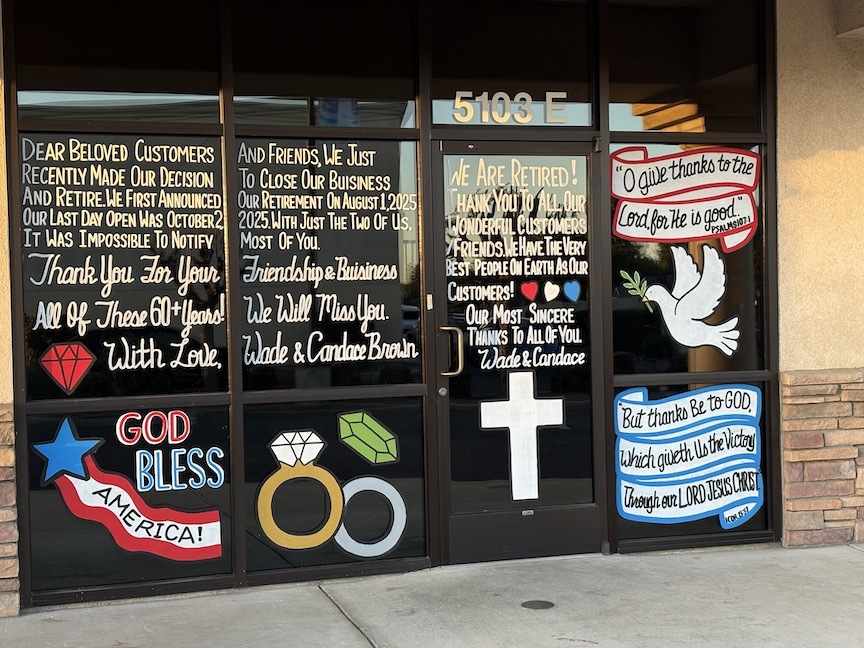 5103 E
DEAR BELOVED CUSTOMERS AND FRIENDS, WE JUST
RECENTLY MADE OUR DECISION TO CLOSE OUR BUISINESS
AND RETIRE. WE FIRST ANNOUNCED OUR RETIREMENT ON AUGUST 1, 2025
OUR LAST DAY OPEN WAS OCTOBER 2, 2025. WITH JUST THE TWO OF US,
IT WAS IMPOSSIBLE TO NOTIFY MOST OF YOU.
Thank You For Your Friendship & Buisiness
All Of These 60+ Years! We Will Miss You.
With Love, Wade & Candace Brown
GOD
BLESS
AMERICA!
WE ARE RETIRED!
THANK YOU TO ALL OUR
WONDERFUL CUSTOMERS
/FRIENDS. WE HAVE THE VERY
BEST PEOPLE ON EARTH AS OUR
CUSTOMERS!
OUR MOST SINCERE
THANKS TO ALL OF YOU.
Wade & Candace
"O give thanks to the
Lord, for He is good."
PSALMS 107:1
"But thanks Be to GOD,
Which giveth Us the Victory
Through our LORD JESUS CHRIST.
1 COR. 15:57